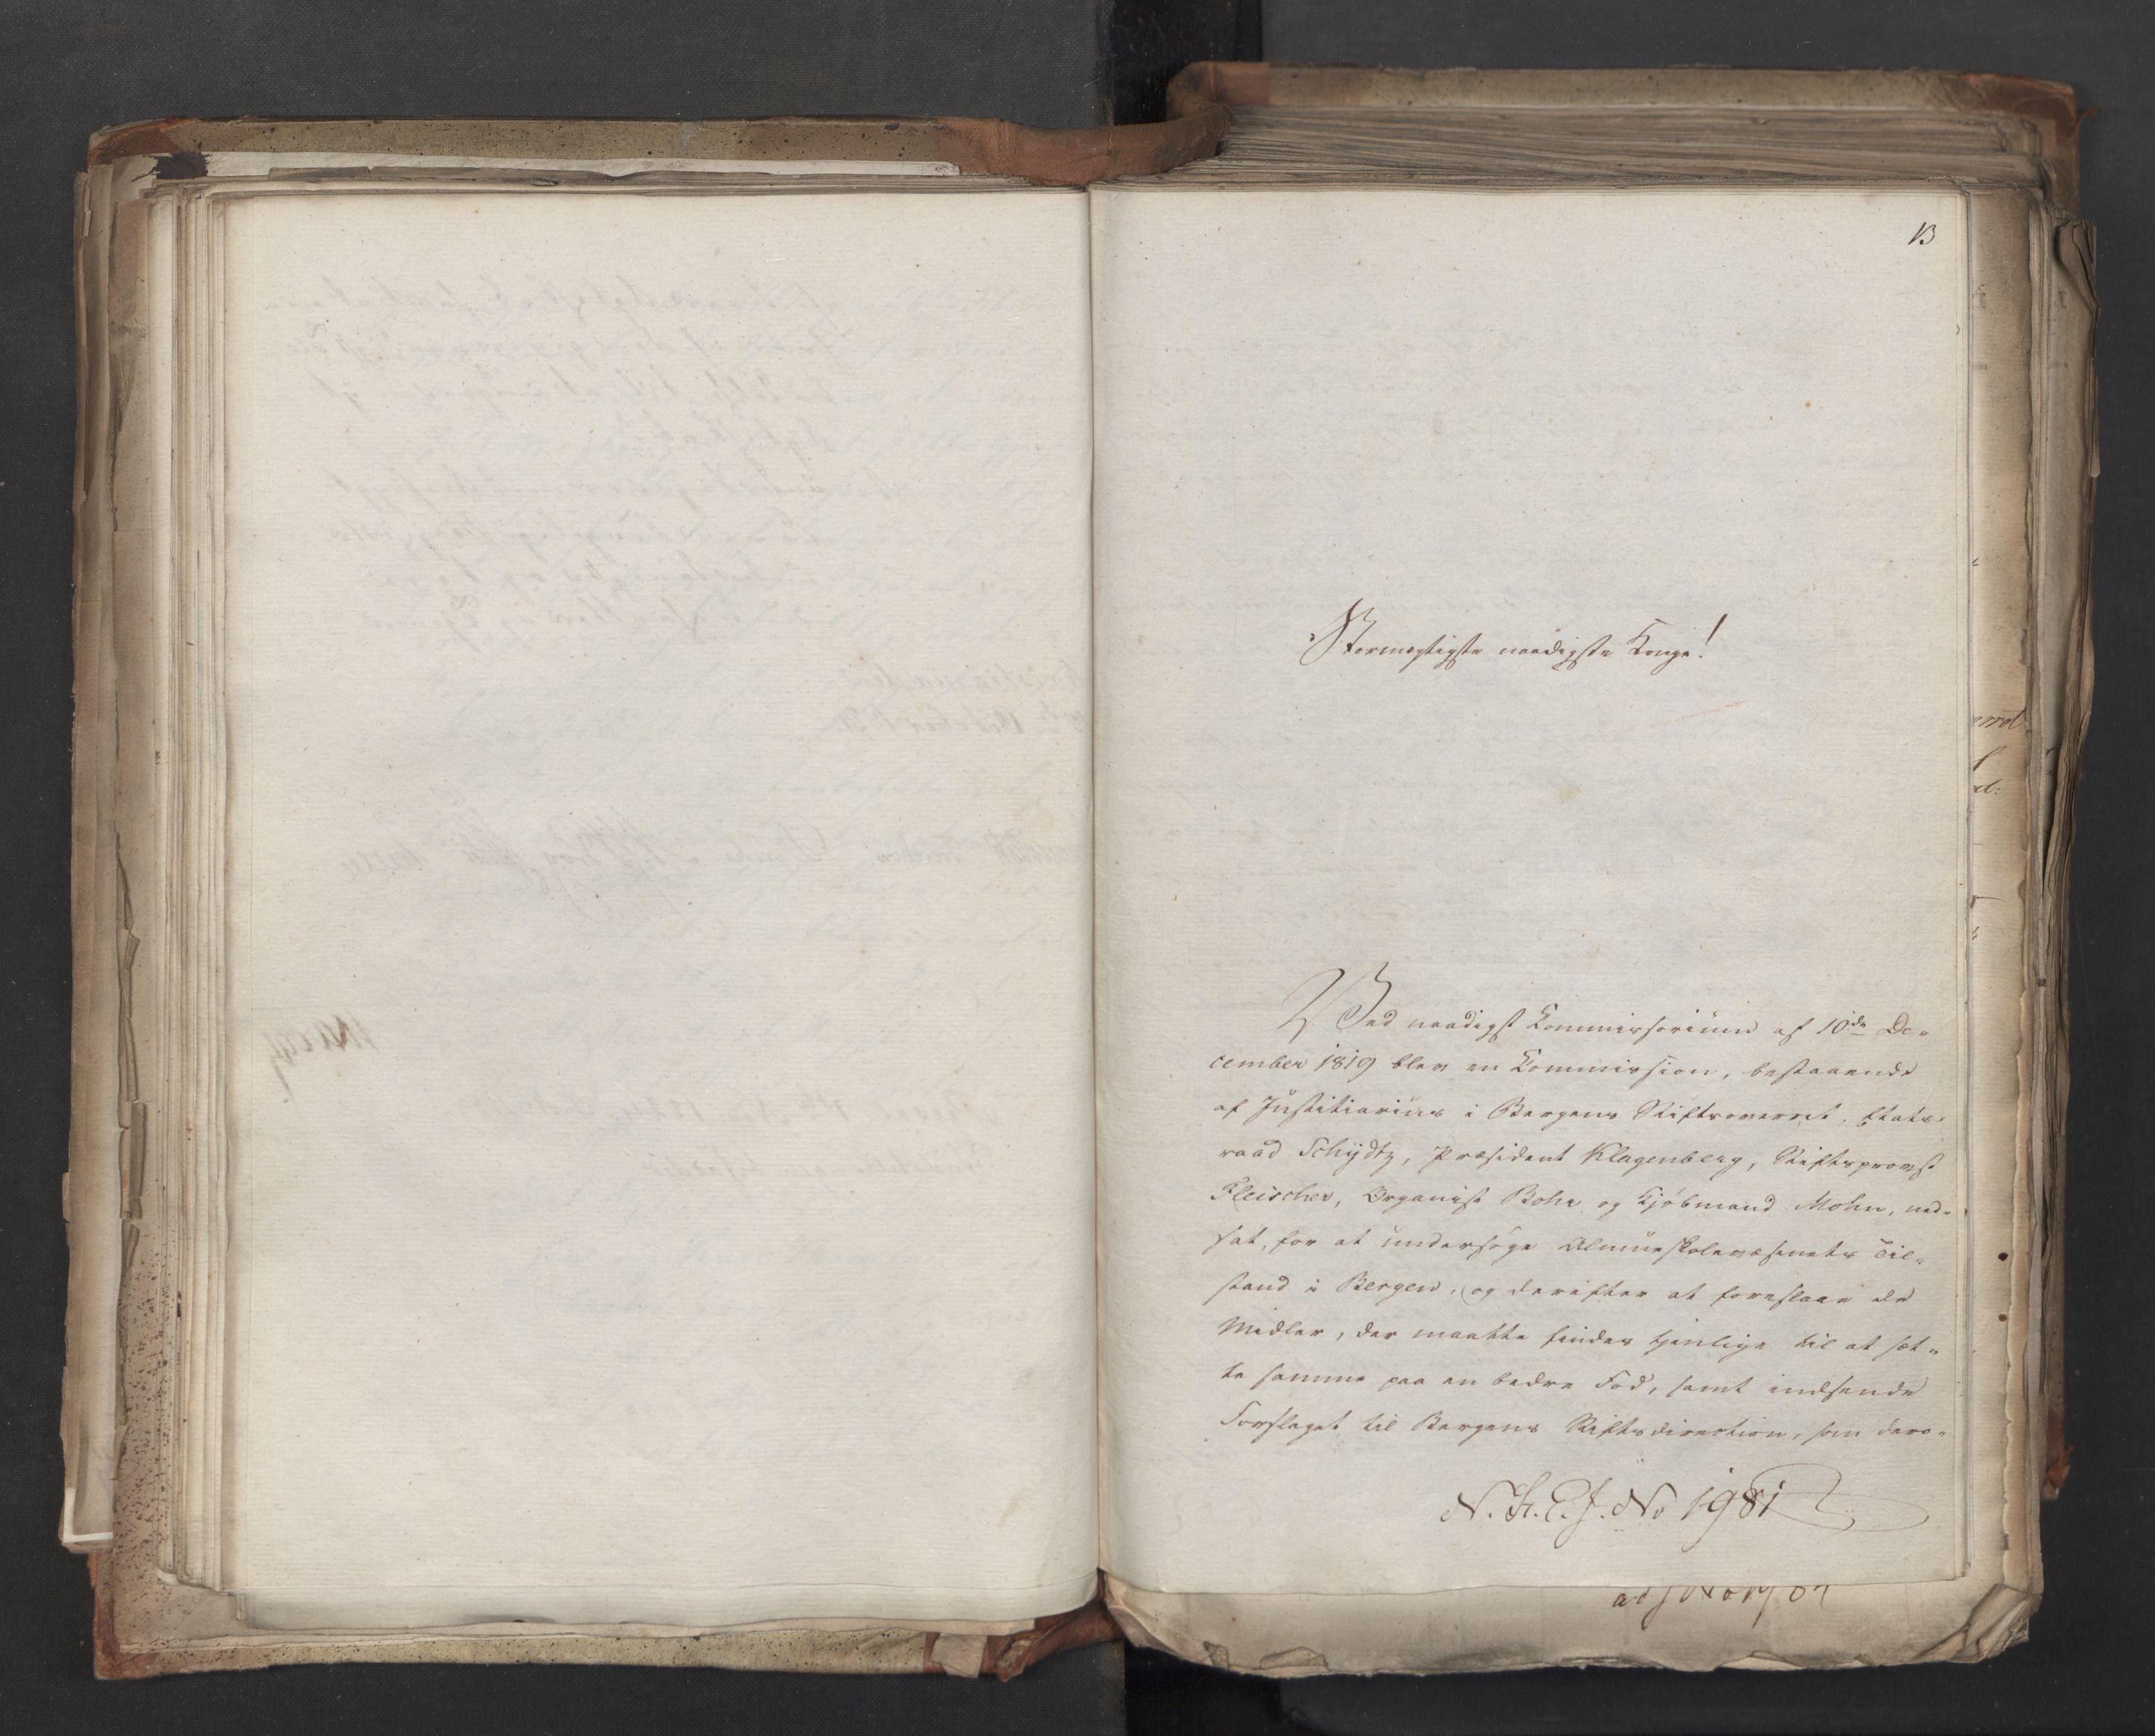 13
Stormægtigste naadigste Konge!
Ved naadigst Kommissorium af 10de De-
cember 1819 blev en Kommission, bestaaende
af Justitiarius i Bergens Stiftsoverret, Etats-
raad Schydtz, Præsident Klagenberg, Stiftsprovst
Fleischer, Organist Bohr og Kjöbmand Mohn, ned-
sat, for at undersöge Almueskolevæsenets Til-
stand i Bergen, og derefter at foreslaae de
Midler, der maatte findes tjenlige til at sæt-
te samme paa en bedre Fod, samt indsende
Forslaget til Bergens Stiftsdirection, som der-
N. K. E. J. No 1981